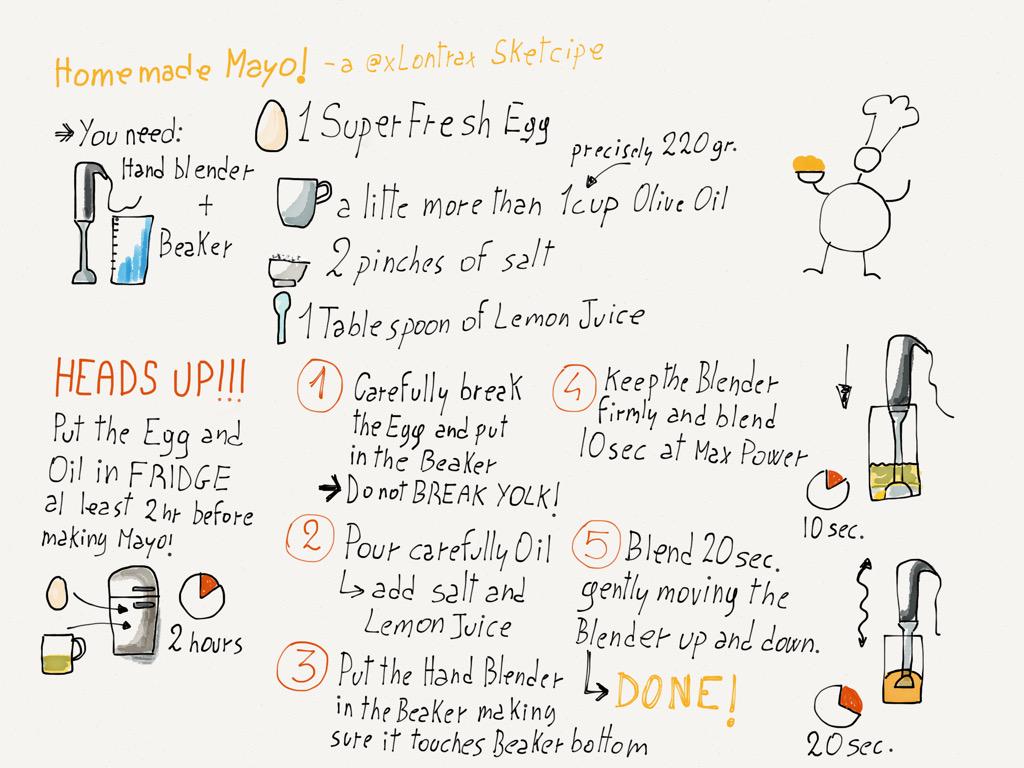 Homemade Mayo! - a @xLontrax Sketcipe
→ You need:
Hand blender
+
Beaker
1 Super Fresh Egg
precisely 220gr.
a little more than 1cup Olive Oil
2 pinches of salt
1 Table spoon of Lemon Juice
HEADS UP!!!
Put the Egg and
Oil in FRIDGE
at least 2hr before
making Mayo!
2 hours
1 Carefully break
the Egg and put
in the Beaker
→ Do not BREAK YOLK!
2 Pour carefully Oil
↳ add salt and
Lemon Juice
3 Put the Hand Blender
in the Beaker making
sure it touches Beaker bottom
4 Keep the Blender
firmly and blend
10sec at Max Power
10 sec.
5 Blend 20sec.
gently moving the
Blender up and down.
↳ DONE!
20 sec.